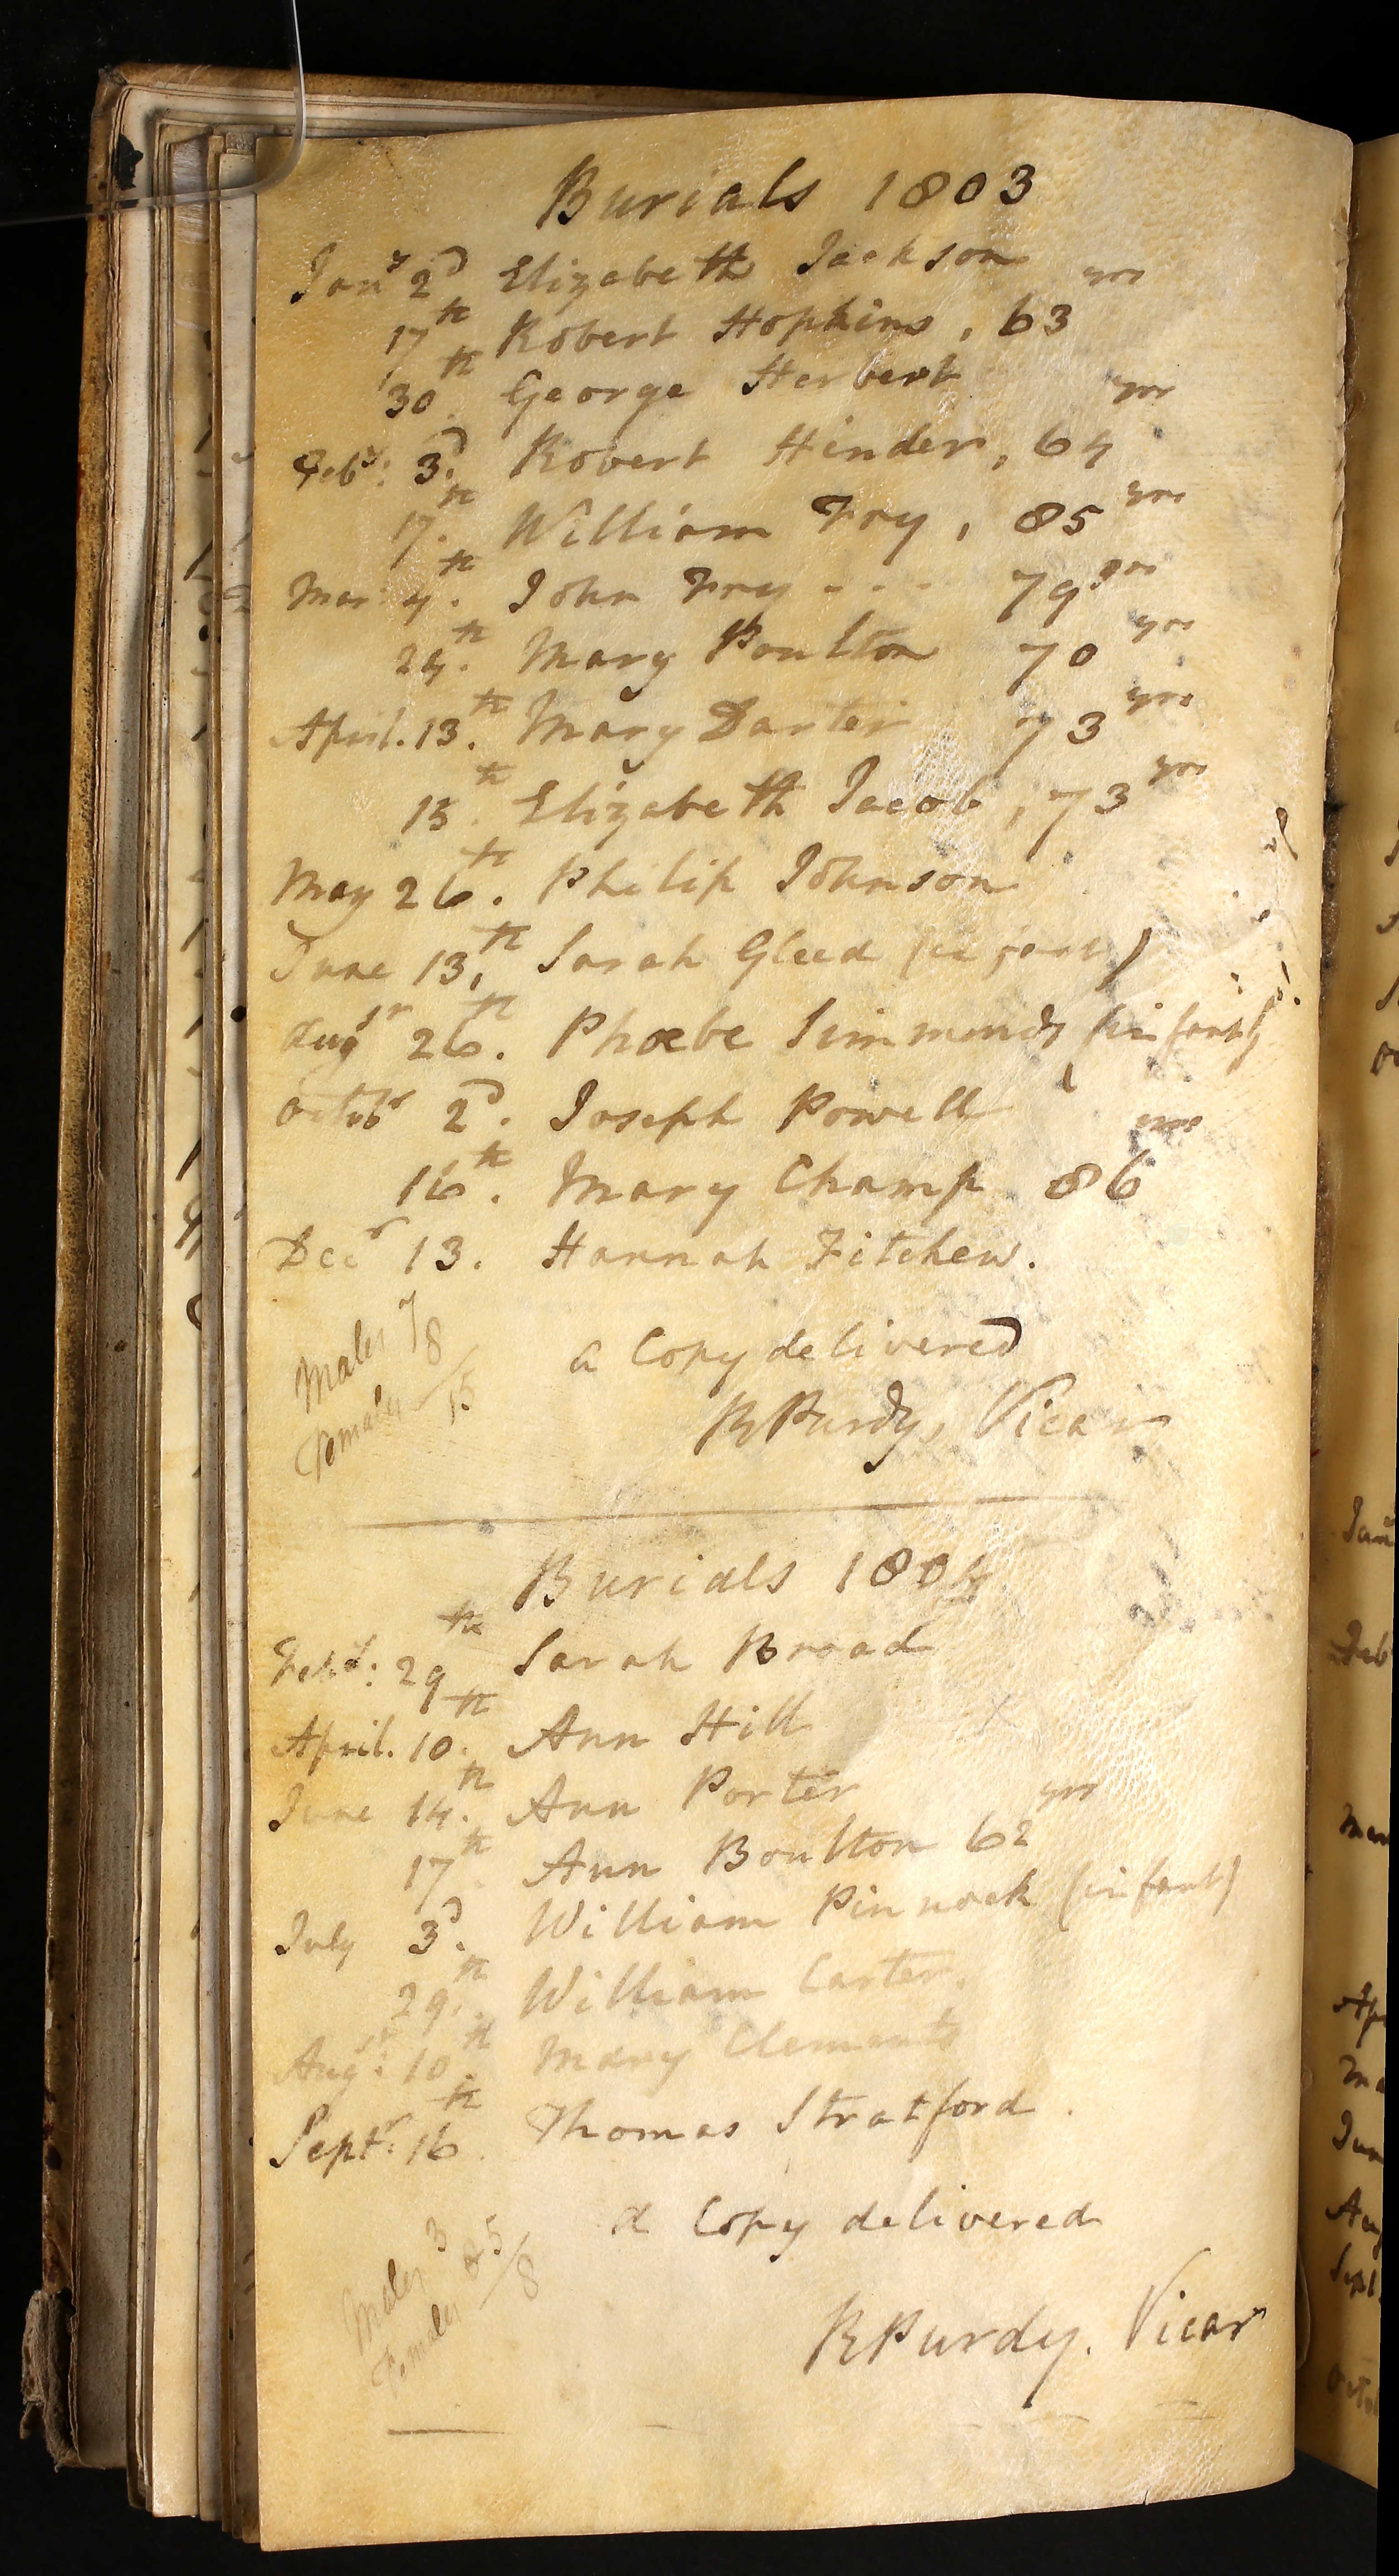 Burials 1803
Jany 2d Elizabeth Jackson
17th Robert Hopkins, 63 yrs
30th. George Herbert
Feby: 3d. Robert Hinder, 64 yrs
17.th William Fry, 85 yrs
Mar 4.th John Fry - - - 79 yrs
24.th Mary Poulton 70 yrs
April. 13.th Mary Darter 73 yrs
15.th Elizabeth Jacob, 73 yrs
May 26th. Philip Johnson
June 13,th Sarah Gleed (infant)
Augst 26.th Phœbe Simmonds (infant)
Octobr 2d. Joseph Powell
16th. Mary Champ 86 yrs
Decr 13. Hannah Fitchew.
Males 7
Females 8
15
a Copy delivered
R Purdy, Vicar
Burials 1804
Feby: 29th Sarah Broad
April. 10.th Ann Hill
June 14.th Ann Porter
17th Ann Boulton 62 yrs
July 3d. William Pinnock (infant)
29.th William Carter.
Augst: 10.th Mary Clements
Septr. 16th Thomas Stratford.
Males 3
Females 5
8
a Copy delivered
R Purdy. Vicar